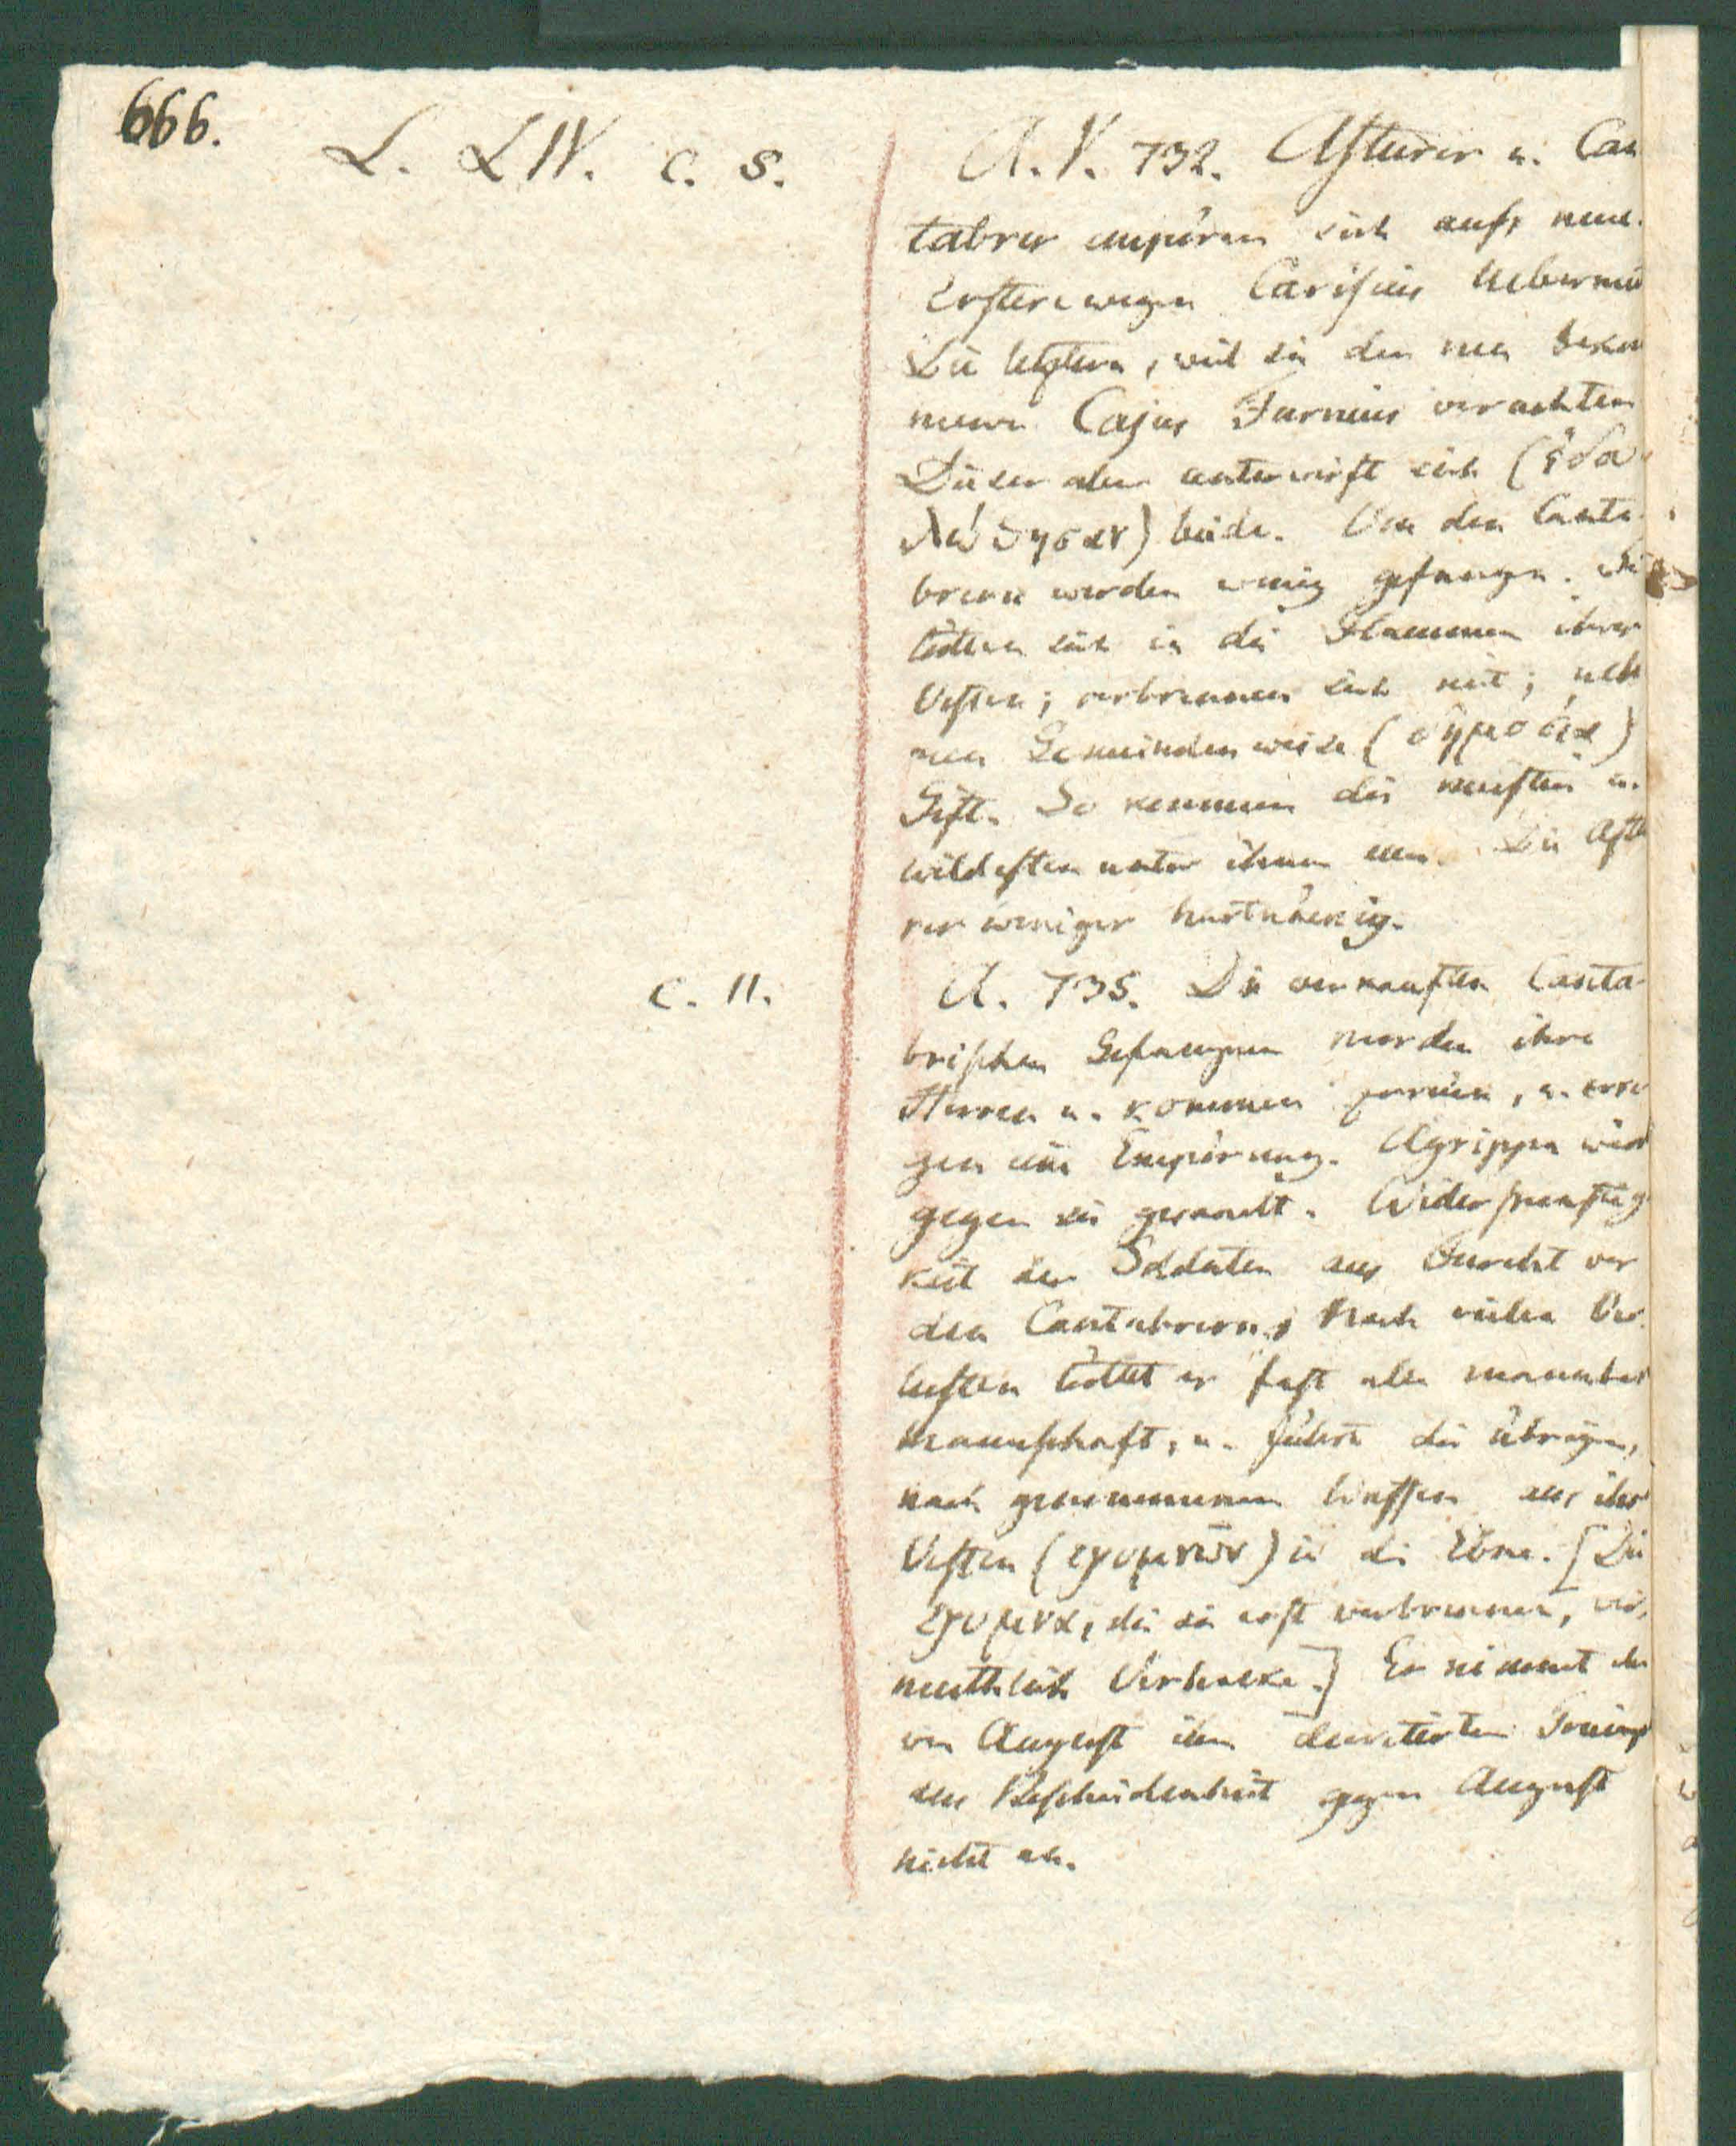 666.
L. LIV. c. 5.
A. V. 732. Asturer u. Can
tabrer empören sich aufs neue.
Erstere wegen Carisius Uebermu
Die letztern, weil sie den neu gekom
menen Cajus Furnius verachten
Dieser aber unterwirft sich (ἐδου
λώθησαν) beide. Von den Canta-
brern werden wenig gefangen. Sie
tödten sich in die Flammen ihrer
Vesten; verbrennen sich mit; neh
men Gemeindenweise (δημοσίᾳ)
Gift. So kommen die meisten u.
wildesten unter ihnen um. Die Astu
rer weniger hartnäckig.
c. 11.
A. 735. Die verkauften Canta-
brischen Gefangnen morden ihre
Herren u. kommen zurück, u. erre
gen eine Empörung. Agrippa wird
gegen sie gesandt. Widerspenstig
keit der Soldaten aus Furcht vor
den Cantabrern. Nach vielen Ver
lusten tödtet er fast alle mannbar
Mannschaft, u. führt die übrigen,
nach genommenen Waffen aus ihr
Vesten (ερυμνῶν) in die Ebne. [Die
ερυμνα, die sie erst verbrennen, ver,
muthlich Verhacke.] Er nimmt den
von August ihm decretirten Triump
aus Bescheidenheit gegen August
nicht an.